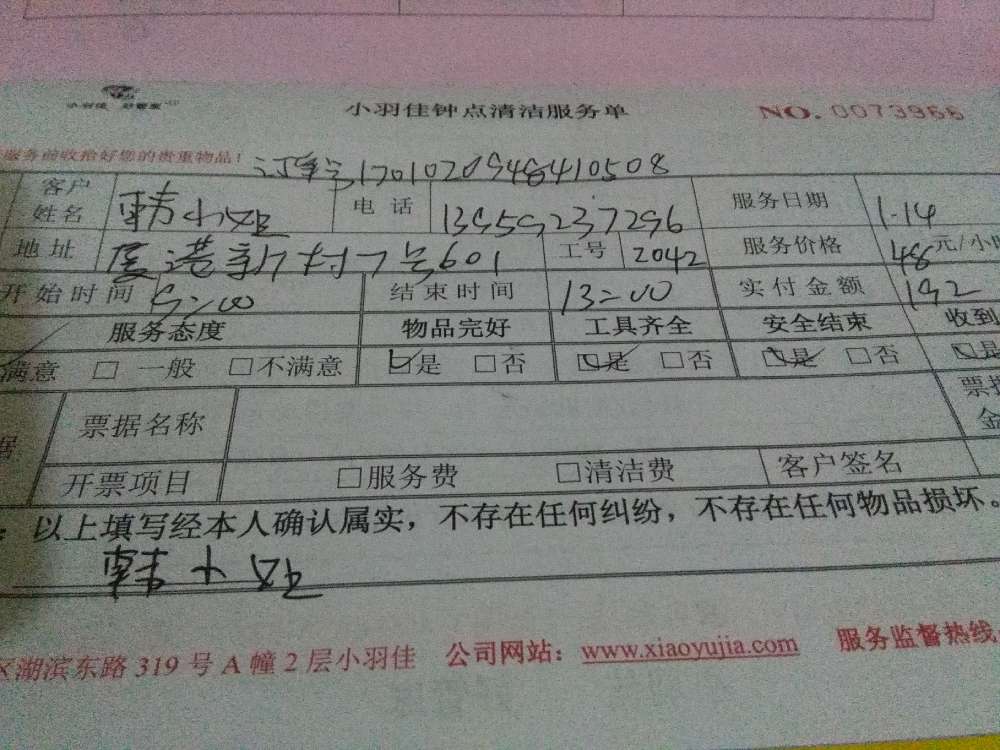 小羽佳
小羽佳钟点清洁服务单 NO. 0073966
服务前收拾好您的贵重物品！
订单号170102094848410508
客户姓名 韩小姐 电话 13959237296 服务日期 1.14
地址 厦港新村7号601 工号 2042 服务价格 48元/小时
开始时间 9:00 结束时间 13:00 实付金额 192
服务态度 物品完好 工具齐全 安全结束 收到
满意 □ 一般 □不满意 ☑是 □否 ☑是 □否 ☑是 □否 ☑是
据 票据名称 票据金
开票项目 □服务费 □清洁费 客户签名
：以上填写经本人确认属实，不存在任何纠纷，不存在任何物品损坏。
韩小姐
区湖滨东路 319 号 A 幢 2 层小羽佳 公司网站：www.xiaoyujia.com 服务监督热线